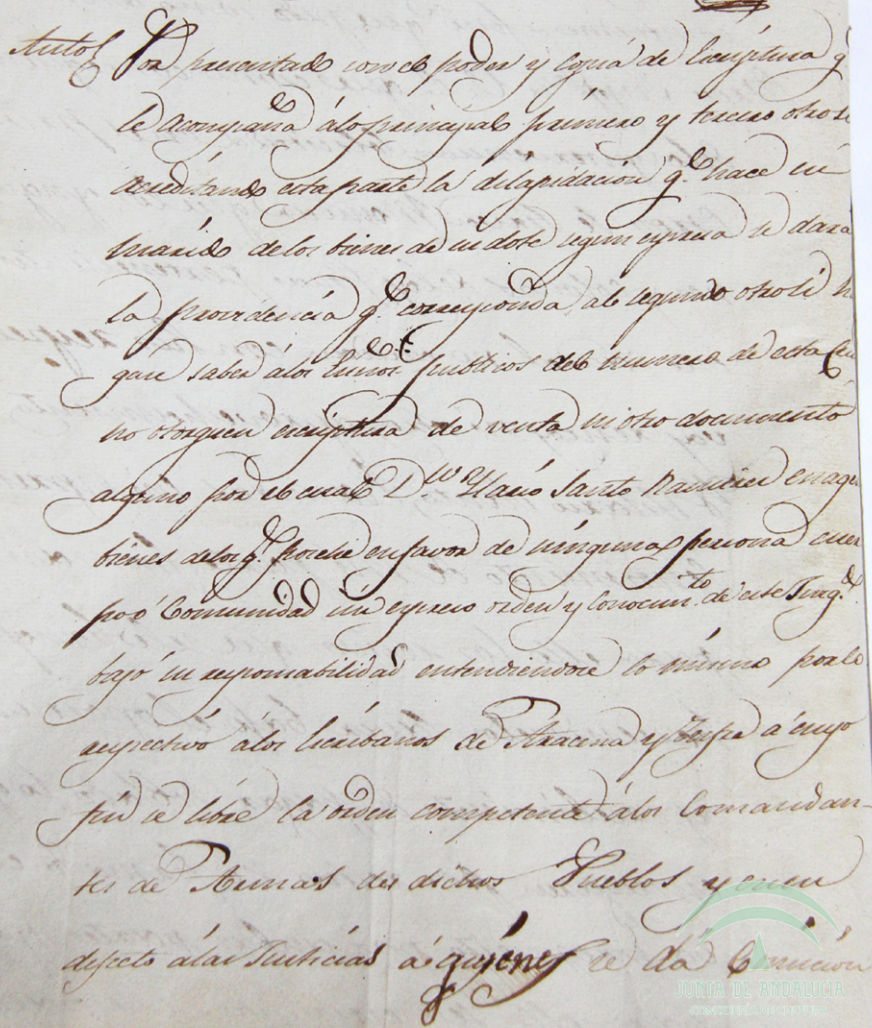 Auto
Por presentado con el poder y copia de Escriptura q.e
le acompaña á lo principal primero y tercero otro si
acreditando esta parte la dilapidacion q.e hace su
marido de los bienes de su dote segun expresa se dara
la providencia q.e corresponda, al segundo otro si ha
gase saber á los Essnos. publicos del numero de esta
no otorguen escriptura de venta ni otro documento
alguno por el cual D.n Ylario Santo Ramirez enage
bienes de los q.e posehe en favor de ninguna persona cuer
po o Comunidad sin expreso orden y conocim.to de este Juzg.do
bajo su responsabilidad entendiendose lo mismo por lo
respectivo á los Escribanos de Aracena y Zufre á cuyo
fin se libre la orden competente á los Comandan-
tes de Armas de dichos Pueblos y en su
defecto á las Justicias á quienes se dá Comicion
JUNTA DE ANDALUCIA
CONSEJERÍA DE CULTURA